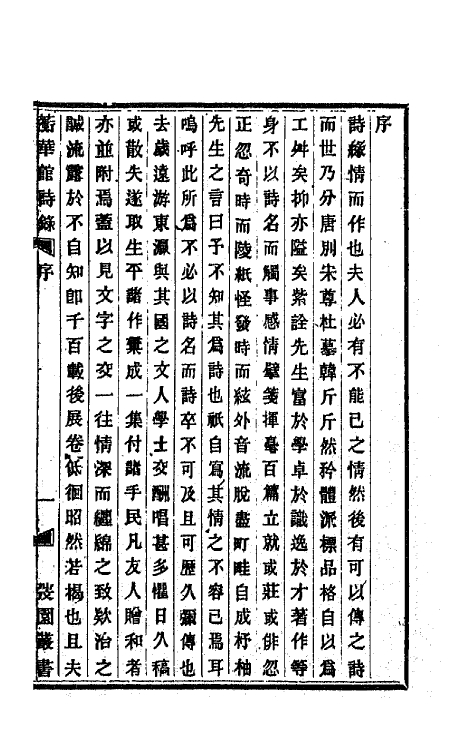 序
詩緣情而作也夫人必有不能已之情然後有可以傳之詩
而世乃分唐別宋尊杜慕韓斤斤然矜體派標品格自以爲
工舛矣抑亦隘矣紫詮先生富於學卓於識逸於才著作等
身不以詩名而觸事感情擘箋揮毫百篇立就或莊或俳忽
正忽奇時而陵紙怪發時而絃外音流脫盡町畦自成杼柚
先生之言曰予不知其爲詩也祇自寫其情之不容已焉耳
嗚呼此所爲不必以詩名而詩卒不可及且可歷久彌傳也
去歲遠游東瀛與其國之文人學士交酬唱甚多懼日久稿
或散失遂取生平諸作彙成一集付諸手民凡友人贈和者
亦並附焉蓋以見文字之交一往情深而纏綿之致欵洽之
誠流露於不自知卽千百載後展卷低徊昭然若揭也且夫
蘅華館詩錄 序 一 弢園叢書